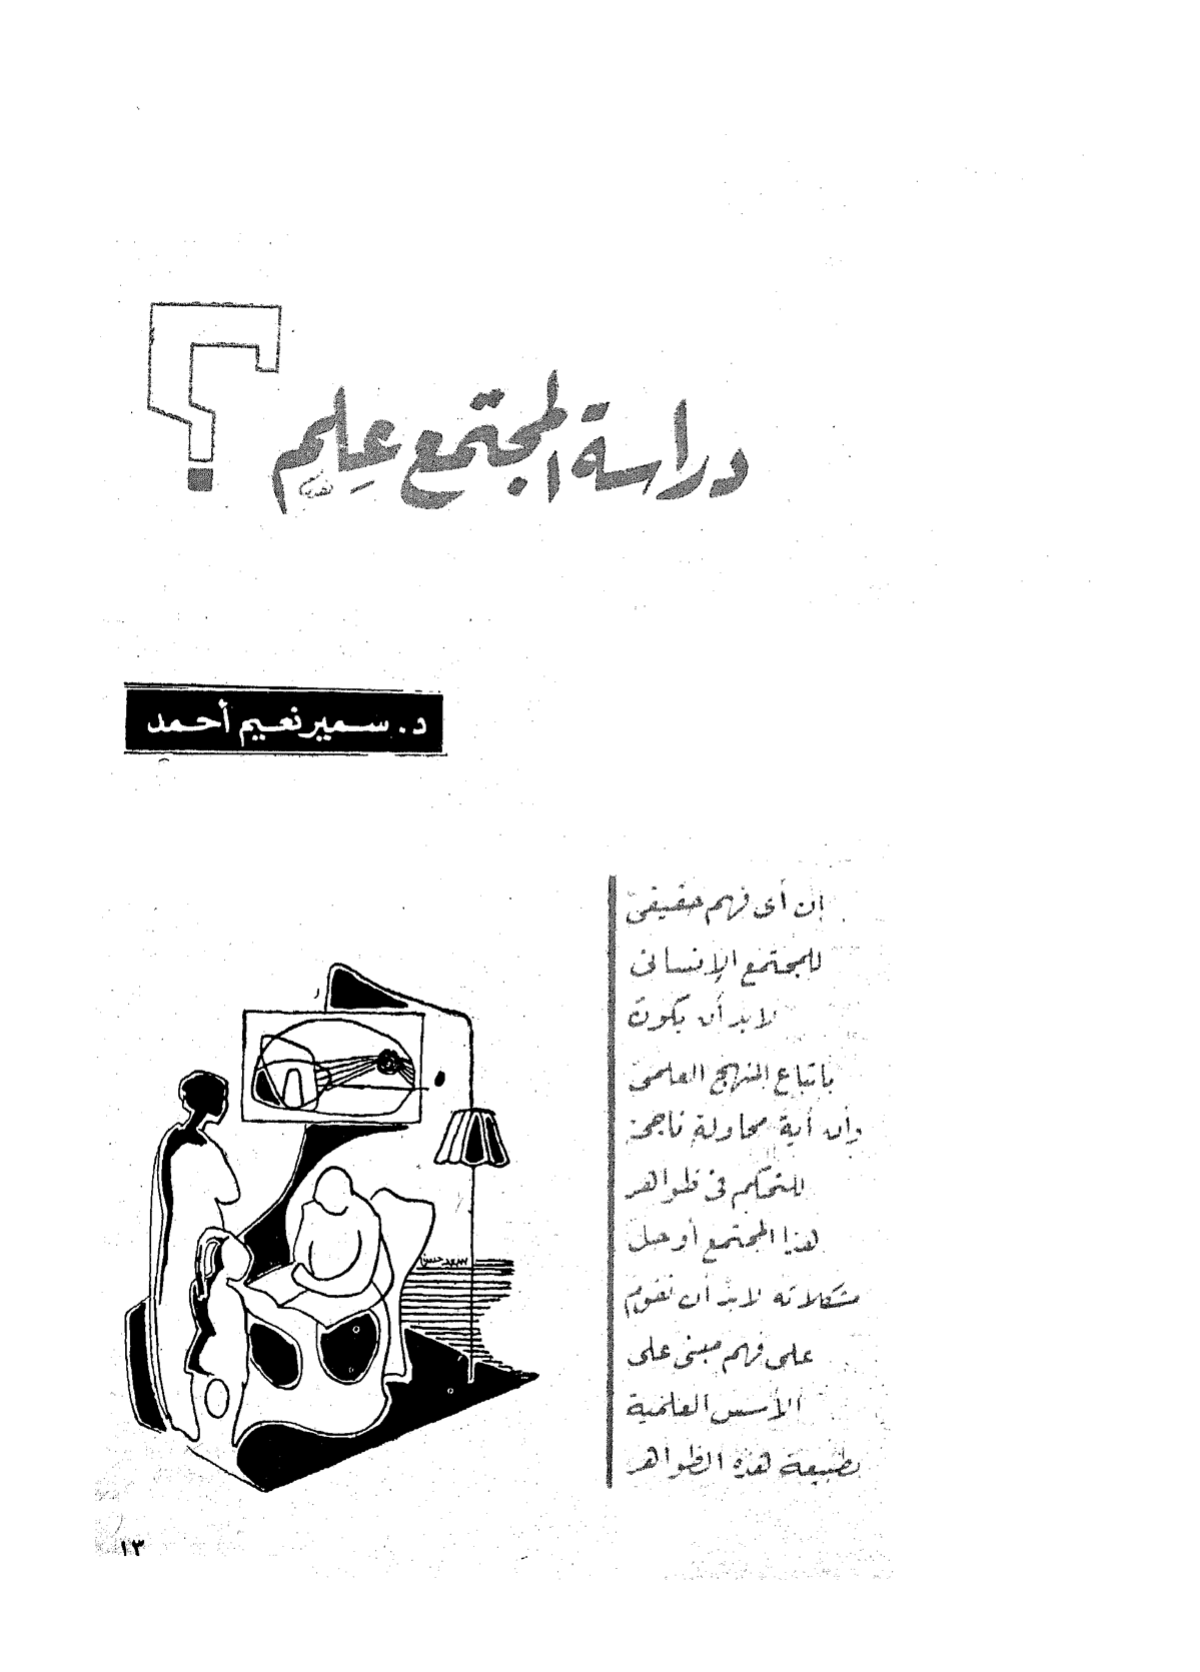 دراسة المجتمع علم ؟
د. سمير نعيم أحمد
إن أى فهم حقيقى
للمجتمع الإنسانى
لابد أن يكون
باتباع المنهج العلمى
وأن أية محاولة ناجحة
للتحكم فى ظواهر
هذا المجتمع أو حل
مشكلاته لابد أن تقوم
على فهم مبنى على
الأسس العلمية
لطبيعة هذه الظواهر
سعيد
١٣